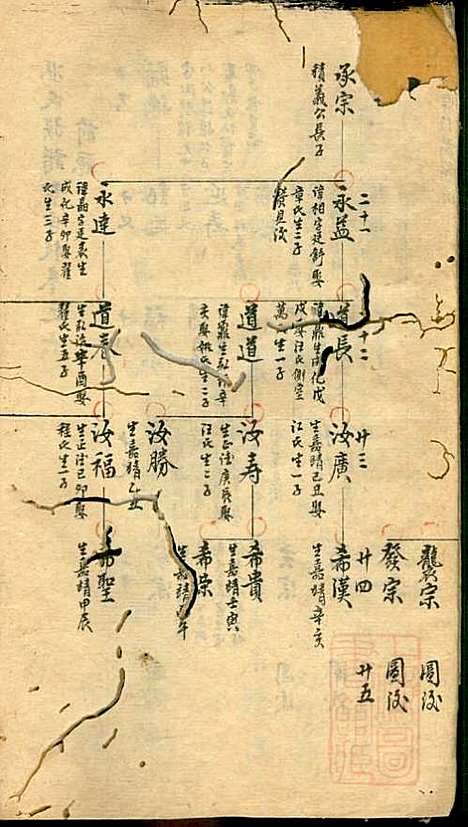 承宗
積義公長子
二十一
永益
諱相字廷舒娶
章氏生二子
永達
諱晶字廷表生
成化辛卯娶翟
氏生三子
道長
諱鼎生成化戊
戌娶汪氏側室
萬氏生一子
道道
諱鼐生弘治辛
亥娶姚氏生二子
道泰
生弘治辛酉娶
翟氏生五子
廿三
汝廣
生嘉靖己丑娶
汪氏生一子
汝寿
生正德庚辰娶
汪氏生二子
汝勝
生嘉靖乙丑
汝福
生正德己卯娶
程氏生一子
龔宗
發宗
廿四
希漢
生嘉靖辛亥
希貴
生嘉靖壬寅
希崇
生嘉靖
希聖
生嘉靖甲辰
圓後
圓後
廿五